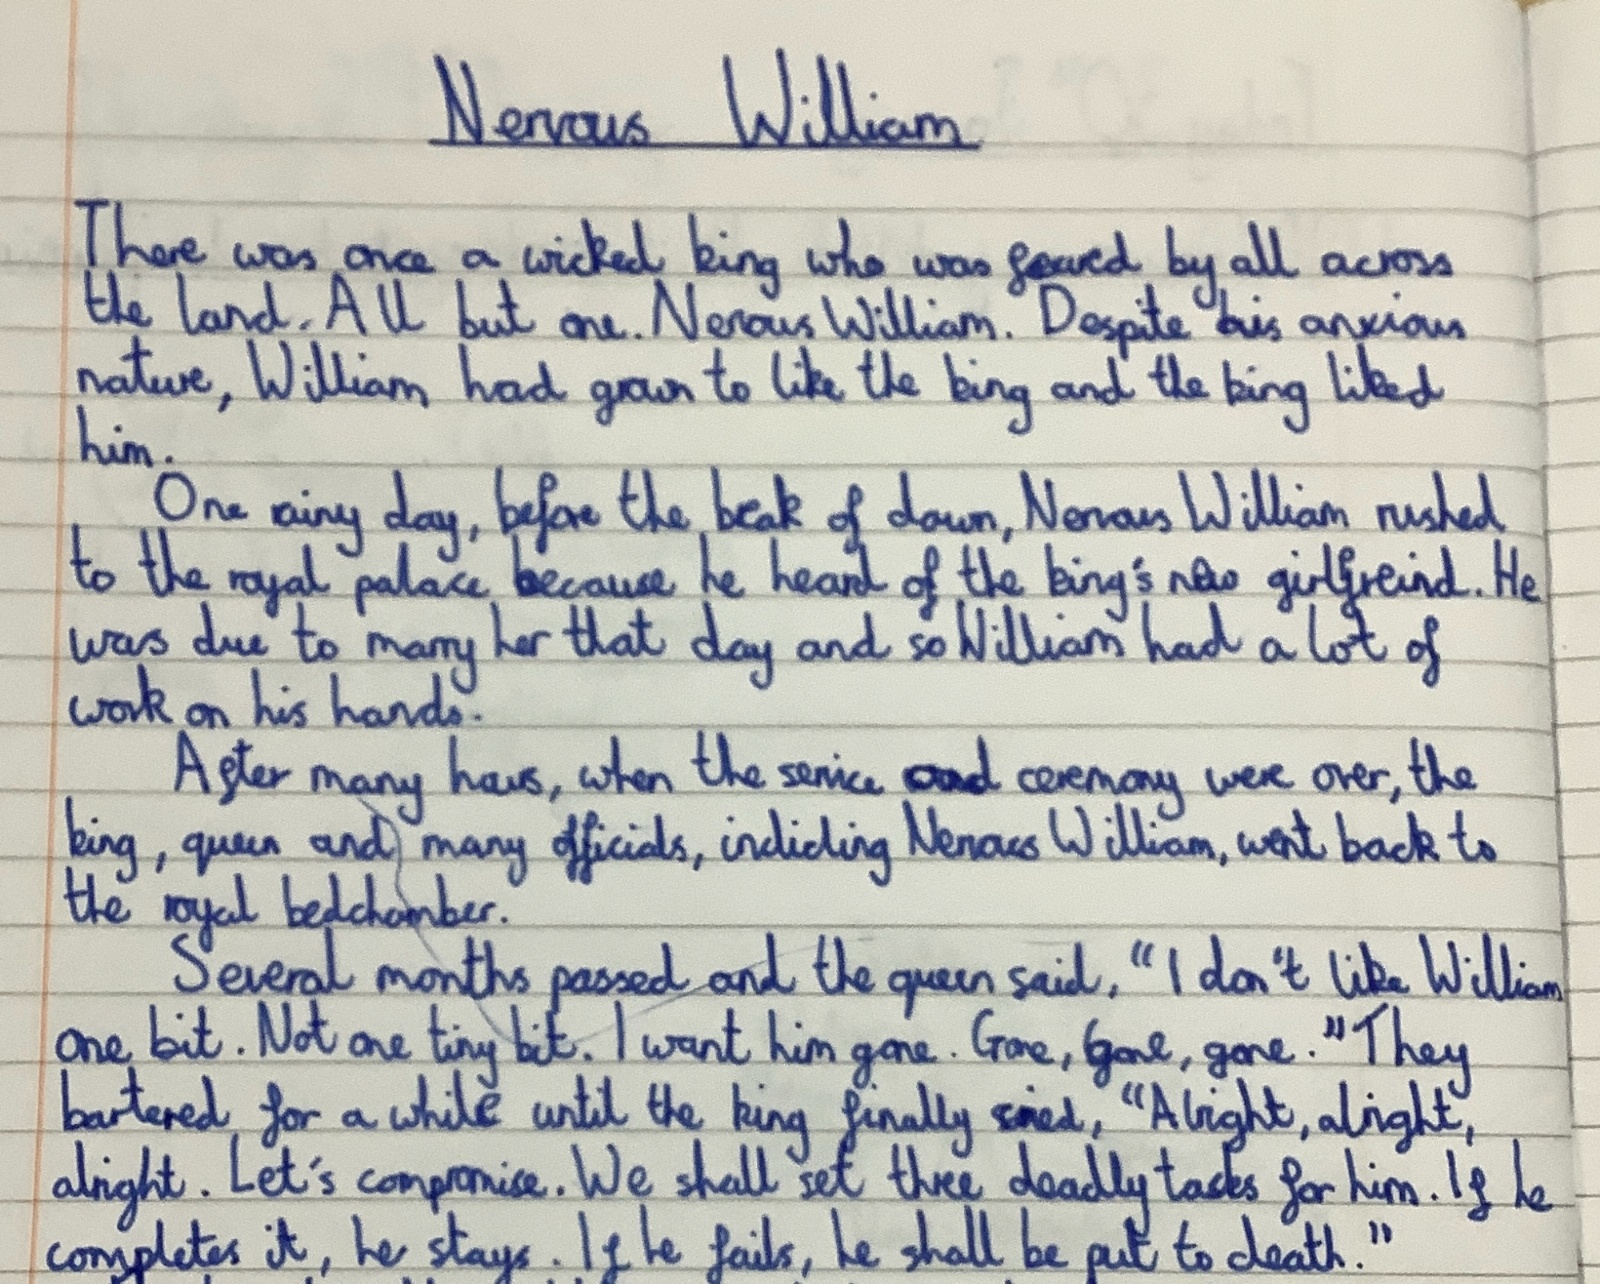 Nervous William
There was once a wicked king who was feared by all across
the land. All but one. Nervous William. Despite his anxious
nature, William had grown to like the king and the king liked
him.
One rainy day, before the break of dawn, Nervous William rushed
to the royal palace because he heard of the king's new girlfreind. He
was due to marry her that day and so William had a lot of
work on his hands.
After many hours, when the service and ceremony were over, the
king, queen and many officials, including Nervous William, went back to
the royal bedchamber.
Several months passed and the queen said, "I don't like William
one bit. Not one tiny bit. I want him gone. Gone, gone, gone." They
bartered for a while until the king finally cried, "Alright, alright,
alright. Let's compromise. We shall set three deadly tasks for him. If he
completes it, he stays. If he fails, he shall be put to death."